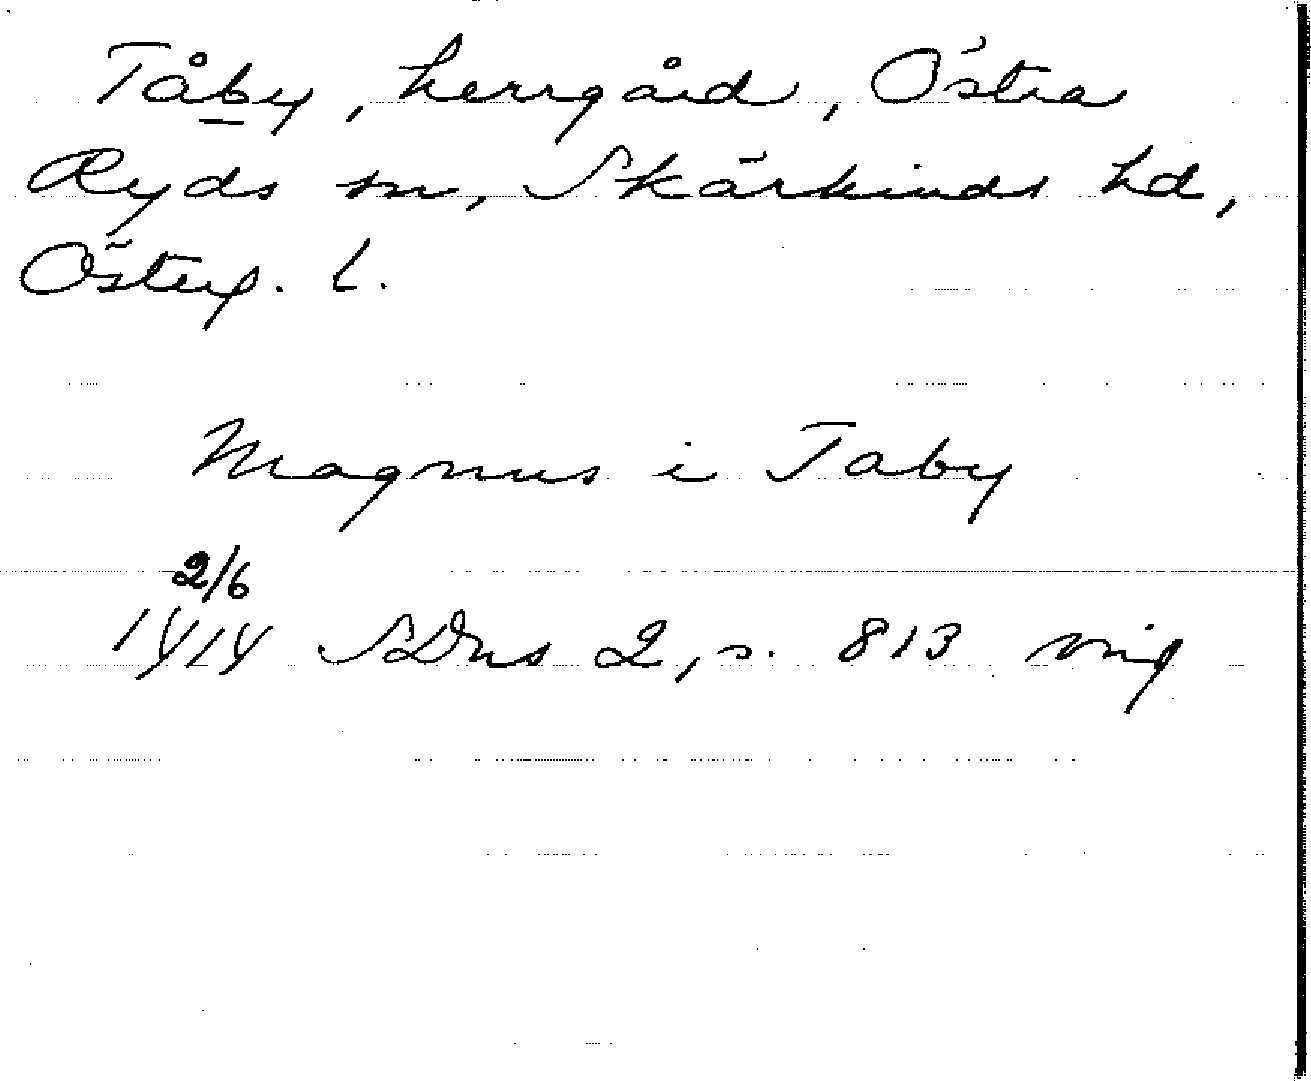 Tåby, herrgård, Östra
Ryds sn, Skärkinds hd,
Österg. l.
Magnus i Taby
2/6
1414 SDns 2, s. 813 vrig